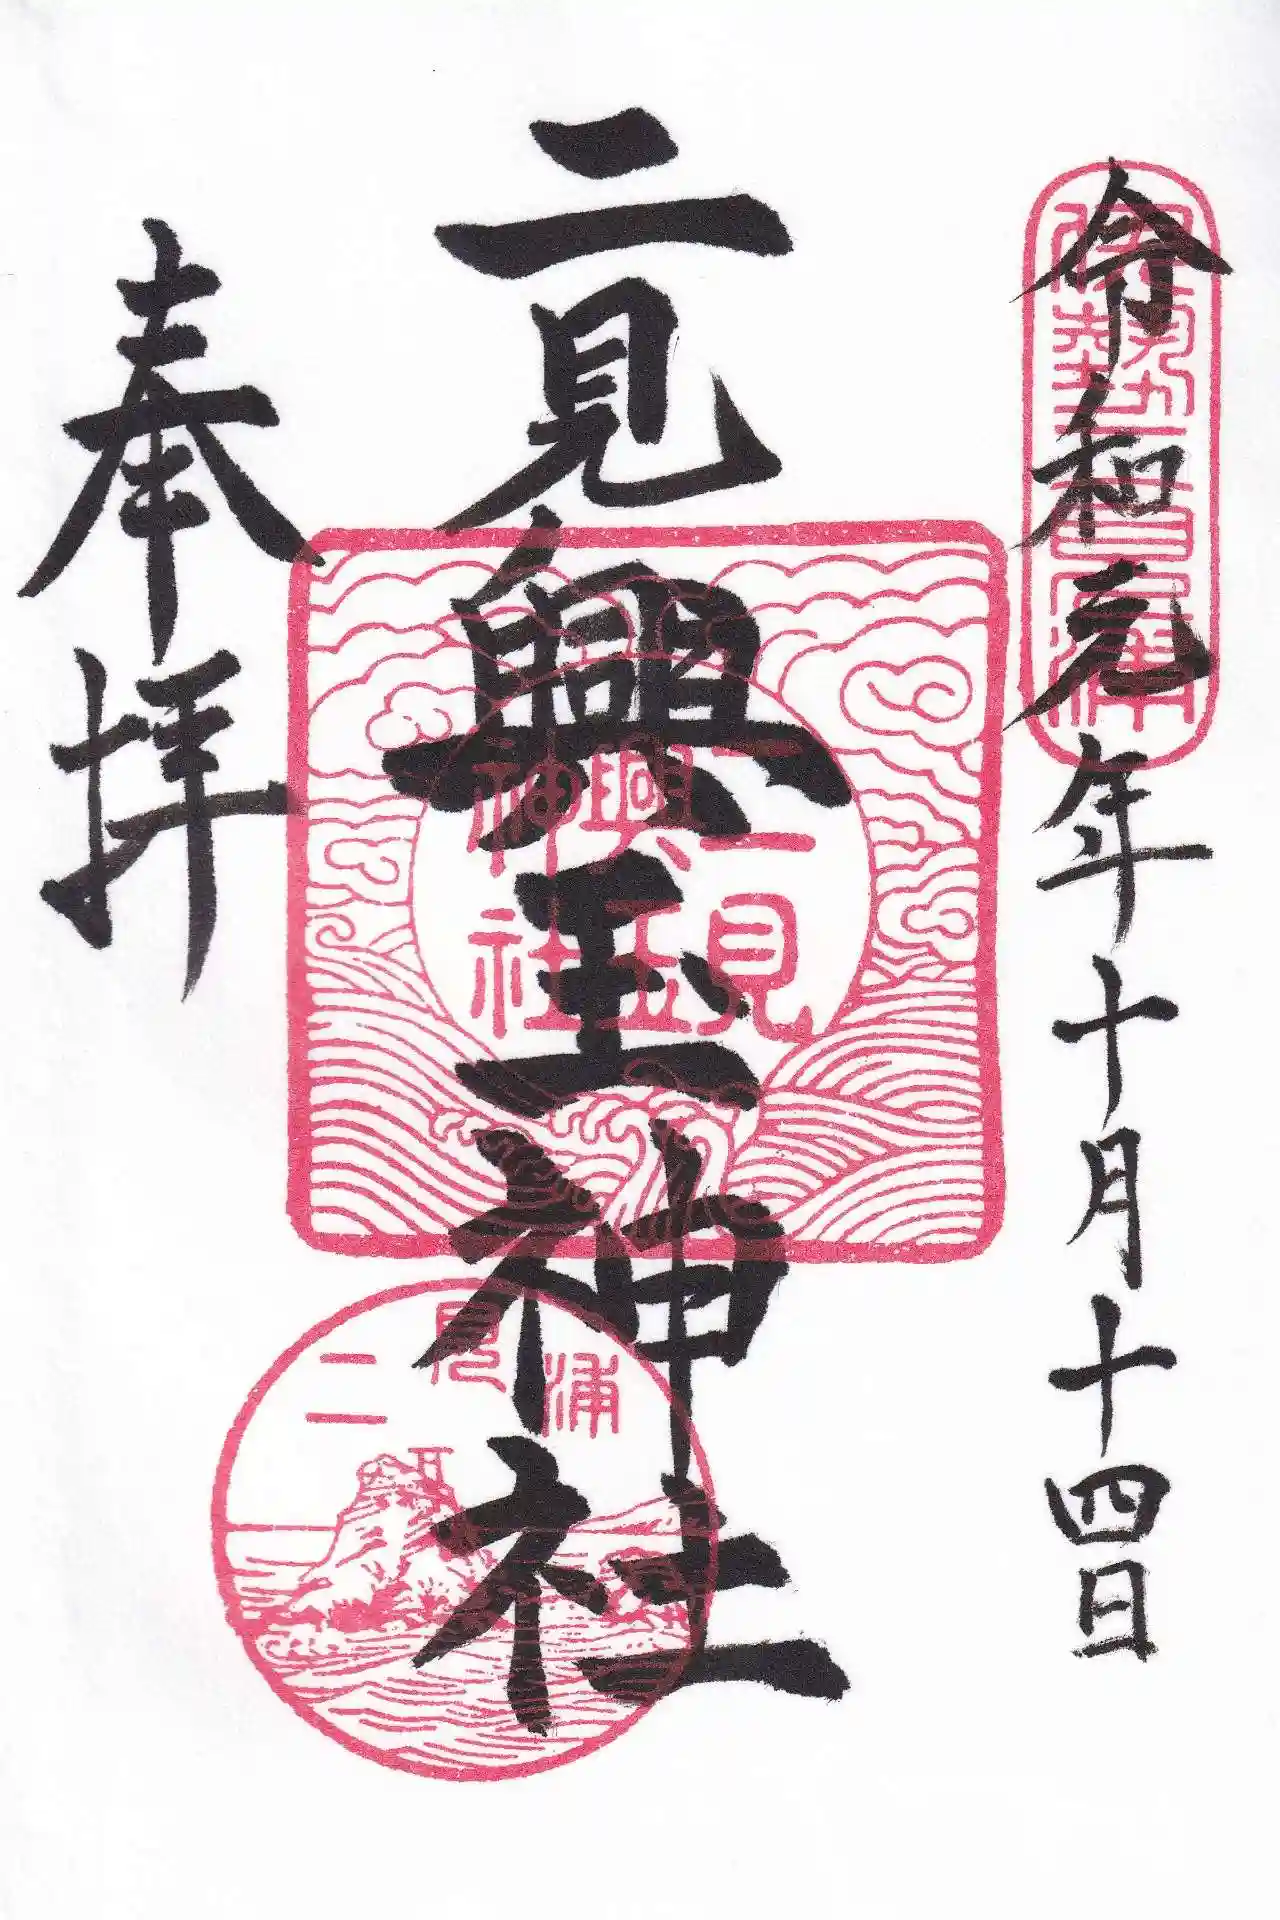 令和元年十月十四日
伊勢二見浦
二見興玉神社
二見
興玉
神社
二見浦
奉拝